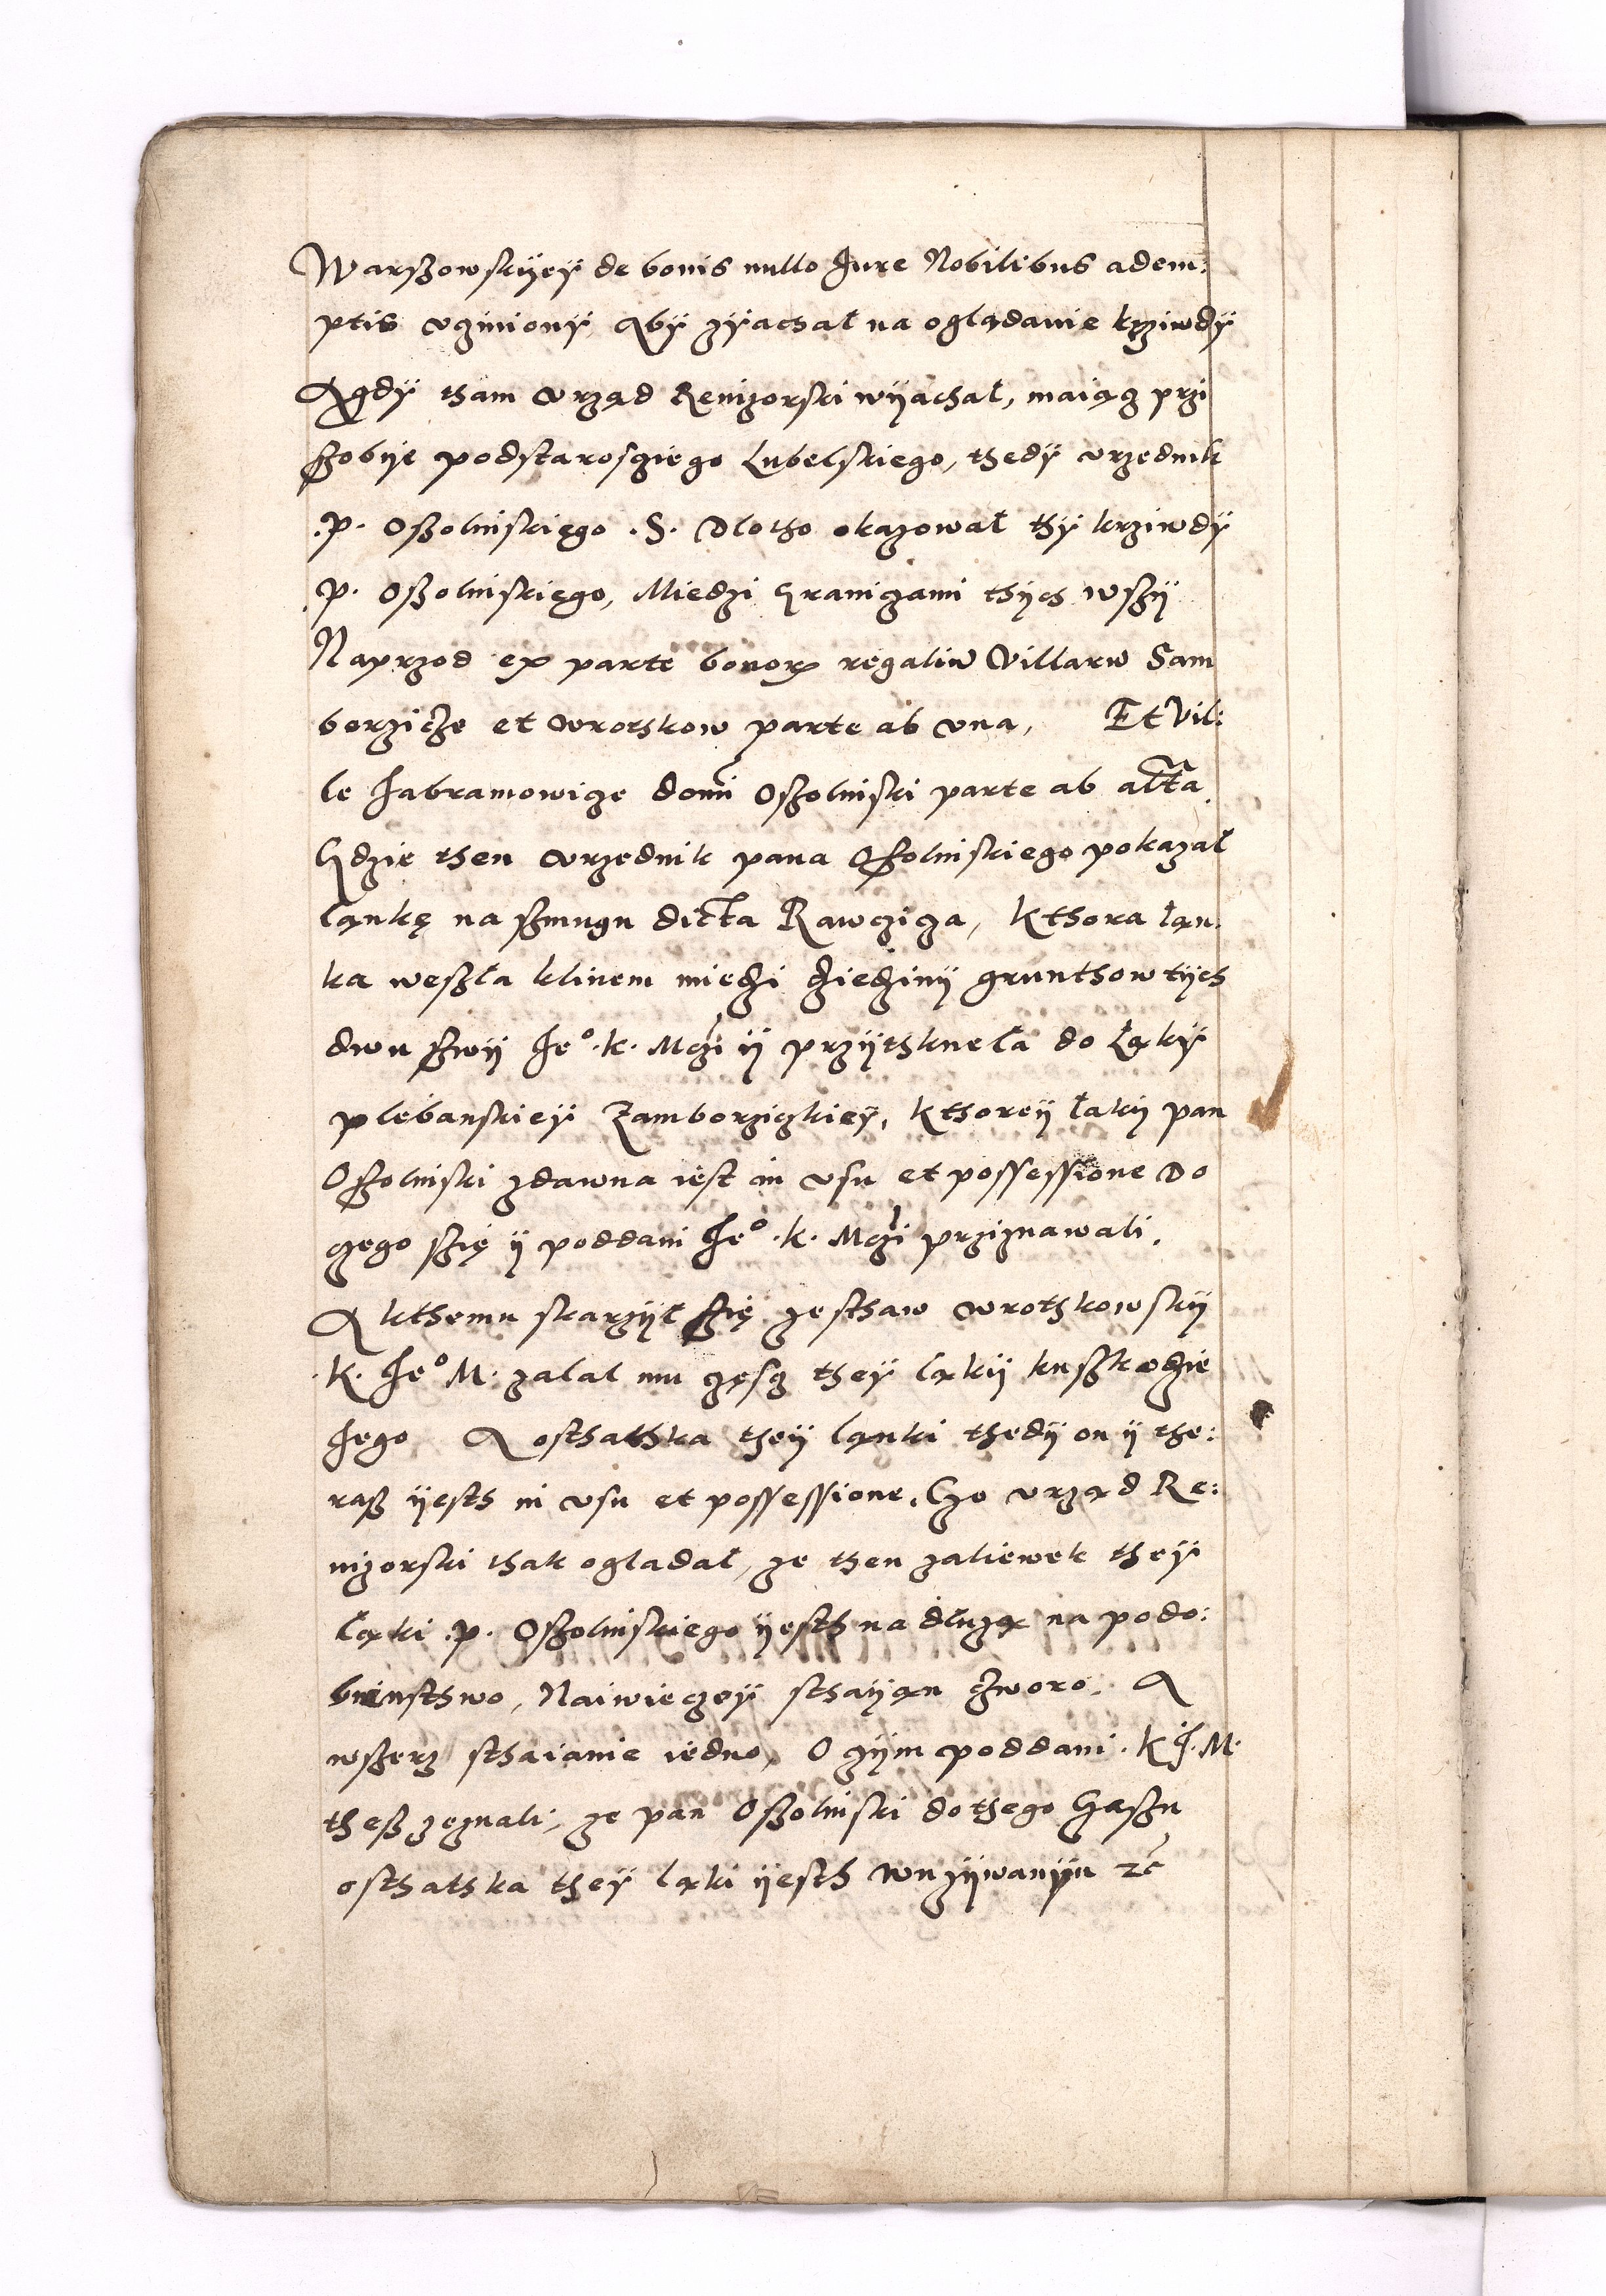 Warszowskyey de bonis nullo Jure Nobilibus adem:
ptis vcziniony aby zyachał na oglądanie krziwdy
A gdy tham vrząd Rewizorski wyachał, maiącz przi
szobye podstarosciego Lubelskiego, thedy vrzednik
.p. Oszolinskiego .S. Dlotho okazował thy krziwdy
.p. Oszolinskiego, Miedzi Graniczami thych wszy
Naprzod ex parte bonorum regaliu Villaru Sam
borzicze et wrothkow parte ab vna, Et Vil:
le Jabramowicze domi Oszolinski parte ab altta
Gdzie then vrzednik pana Oszolinskiego pokazał
ląnkę na szmugu dictta Rawczicza, kthora łąn:
ka weszła klinem miedzi dziedziny grunthow tych
dwu szwy Jeo .k. Mczi y przythknela do Łąky
plebanskiey Zamborziczkiey, kthorey łaky pan
Oszolinski zdawna iest in vsu et possessione Do
czego szię y poddani Jeo .k. Mczi prziznawali.
A kthemu skarzył szię ze sthaw wrothkowsky
.K. Jeo M. zalal mu częscz they łąky ku szkodzie
Jego A osthathka they ląnki thedy on y the:
rasz yesth in vsu et possessione. Czo vrząd Re:
wizorski thak ogladał, ze then zaliewek they
łąki .p. Oszolinskiego yesth na dłuzą na podo:
bieństhwo, Naiwieczey sthayąn czworo, A
wszerz sthaianie iedno, O czym poddani .K J. M.
thesz zeznali, ze pan Oszolinski do thego Czaszu
osthathka they łąki yesth w uzywanyu zc